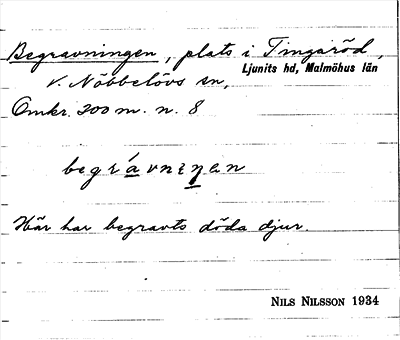 Begravningen, plats i Tingaröd,
Ljunits hd, Malmöhus län
V. Nöbbelövs sn,
Omkr. 200 m. n. 8
begrávnıŋen
Här har begravts döda djur.
NILS NILSSON 1934